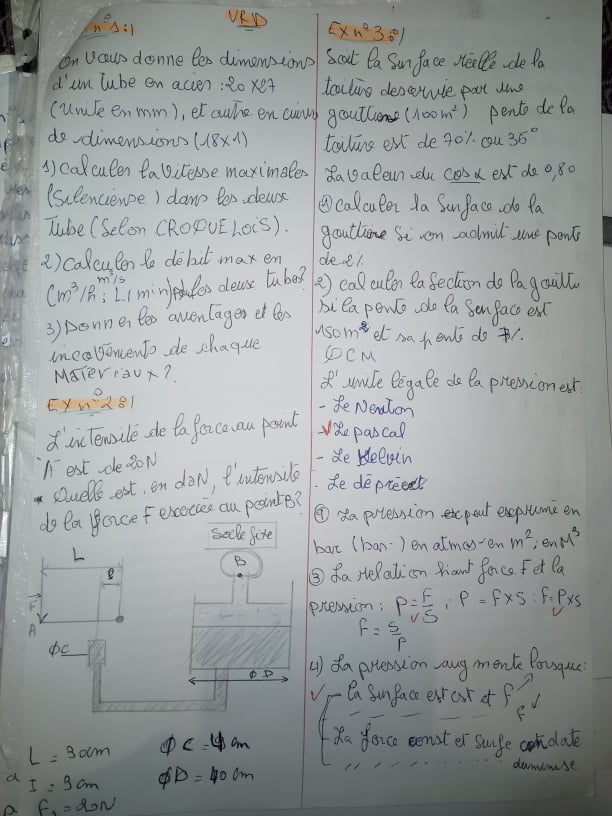 VRD
n°1:1
On vous donne les dimensions
d'un tube en acier : 20 x 27
(unité en mm), et autre en cuivre
de dimensions (18x1)
1) calculer la vitesse maximales
(Silenciense) dans les deux
Tube (Selon CROQUELOIS).
2) Calculer le débit max en
m³/s
(m³/h ; L/min) les deux tube?
3) Donner les avantages et les
incovenients de chaque
Materiaux?
EX n°2:1
L'intensité de la force au point
A est de 20N
* Quelle est, en daN, l'intensité
de la force F exercée au point B?
Socle fixe
B
L
l
F
A
ØC
ØD
L = 30cm
ØC = 4cm
I = 9cm
ØD = 40cm
F = 20N
EX n°3:1
Soit la Surface réelle de la
toiture desservie par une
gouttiere (100m²) pente de la
toiture est de 70% ou 35°
La valeur du cos α est de 0,80
1) calculer la Surface de la
gouttiere Si on admit une pente
de 2%
2) calculer la Section de la
si la pente de la Surface est
150m² et sa pente de %.
QCM
L'unite légale de la pression est:
- Le Newton
- Le pascal
- Le Kelvin
- Le
la pression peut exprimé en
bar (bar-) en atmos- en m², en M³
3) La relation liant force F et la
pression : P = F/S ; P = F x S : F = P x S
F = S/P
4) La pression augmente lorsque:
- la Surface est cst et F
F
- La force const et